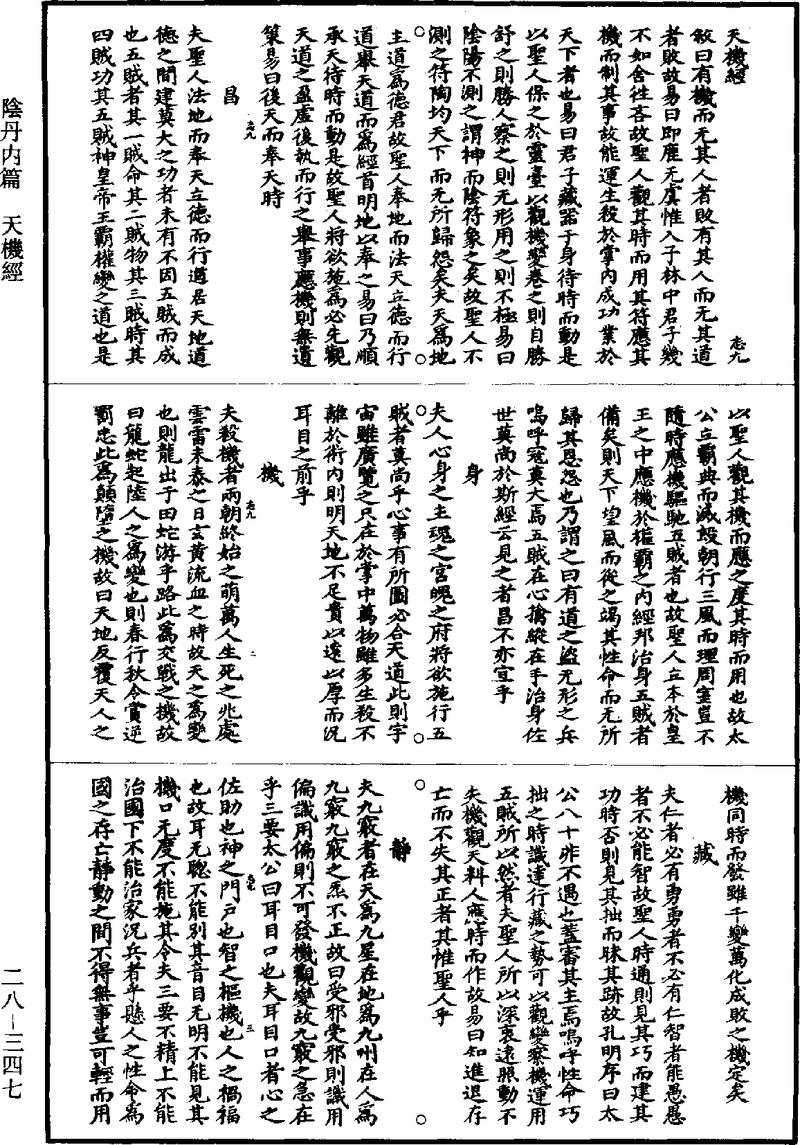 天機經
志九
敘曰有機而无其人者敗有其人而无其道
者敗故易曰即鹿无虞惟入于林中君子幾
不如舍徃吝故聖人觀其時而用其符應其
機而制其事故能運生殺於掌內成功業於
天下者也易曰君子藏器于身待時而動是
以聖人保之於靈臺以觀機變卷之則自勝
舒之則勝人察之則无形用之則不極易曰
陰陽不測之謂神而陰符象之矣故聖人不
測之符陶均天下而无所歸怨矣夫天為地
主道為德君故聖人奉地而法天立德而行
道舉天道而為經首明地以奉之易曰乃順
承天待時而動是故聖人將欲施為必先觀
天道之盈虛後執而行之舉事應機則無遺
策易曰後天而奉天時
昌
志九
夫聖人法地而奉天立德而行道居天地道
德之間建莫大之功者未有不因五賊而成
也五賊者其一賊命其二賊物其三賊時其
四賊功其五賊神皇帝王霸權變之道也是
以聖人觀其機而應之度其時而用也故太
公立霸典而滅殷朝行三風而理周室豈不
隨時應機驅馳五賊者也故聖人立本於皇
王之中應機於權霸之內經邦治身五賊者
備矣則天下望風而從之竭其性命而无所
歸其恩怨也乃謂之曰有道之盜无形之兵
嗚呼寇莫大焉五賊在心擒縱在手治身佐
世莫尚於斯經云見之者昌不亦宜乎
身
夫人心身之主魂之宮魄之府將欲施行五
賊者莫尚乎心事有所圖必合天道此則宇
宙雖廣覽之只在於掌中萬物雖多生殺不
離於術內則明天地不足貴以遠以厚而況
耳目之前乎
機
志九
二
夫殺機者兩朝終始之萌萬人生死之兆處
雲雷未泰之日玄黃流血之時故天之為變
也則龍出于田蛇游乎路此為交戰之機故
曰龍蛇起陸人之為變也則春行秋令賞逆
罰忠此為顛墮之機故曰天地反覆天人之
機同時而發雖千變萬化成敗之機定矣
藏
夫仁者必有勇勇者不必有仁智者能愚愚
者不必能智故聖人時通則見其巧而建其
功時否則見其拙而昧其跡故孔明序曰太
公八十非不遇也蓋審其主焉嗚呼性命巧
拙之時識達行藏之勢可以觀變察機運用
五賊所以然者夫聖人所以深衷遠照動不
失機觀天料人應時而作故易曰知進退存
亡而不失其正者其惟聖人乎
靜
夫九竅者在天為九星在地為九州在人為
九竅九竅之炁不正故曰受邪受邪則識用
偏識用偏則不可發機觀變故九竅之急在
乎三要太公曰耳目口也夫耳目口者心之
志九
三
佐助也神之門戶也智之樞機也人之禍福
也故耳无聰不能別其音目无明不能見其
機口无度不能施其令夫三要不精上不能
治國下不能治家況兵者乎懸人之性命為
國之存亡靜動之間不得無事豈可輕而用
陰丹內篇　天機經
二八－三四七